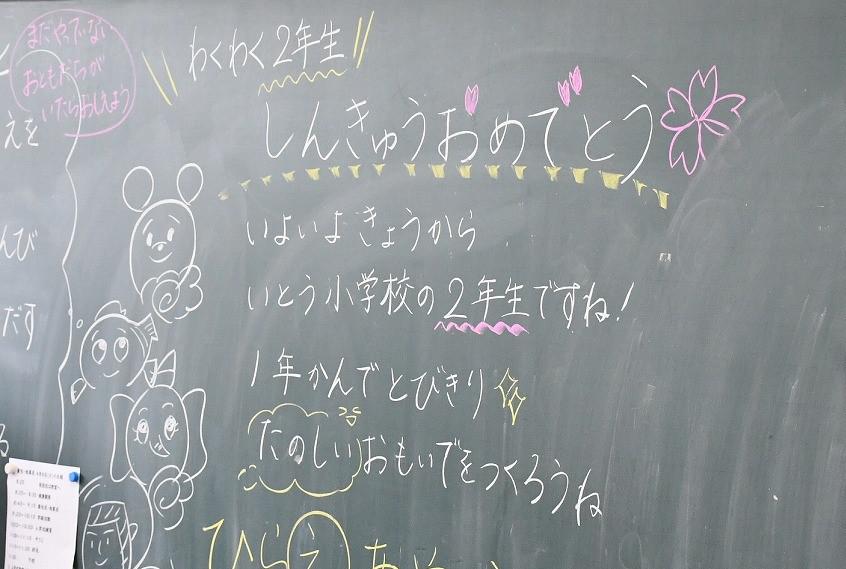 まだやってない
おともだちが
いたらおしえよう
えを
んび
だす
る
わくわく2年生
しんきゅうおめでとう
いよいよきょうから
いとう小学校の2年生ですね!
1年かんでとびきり
たのしいおもいでをつくろうね